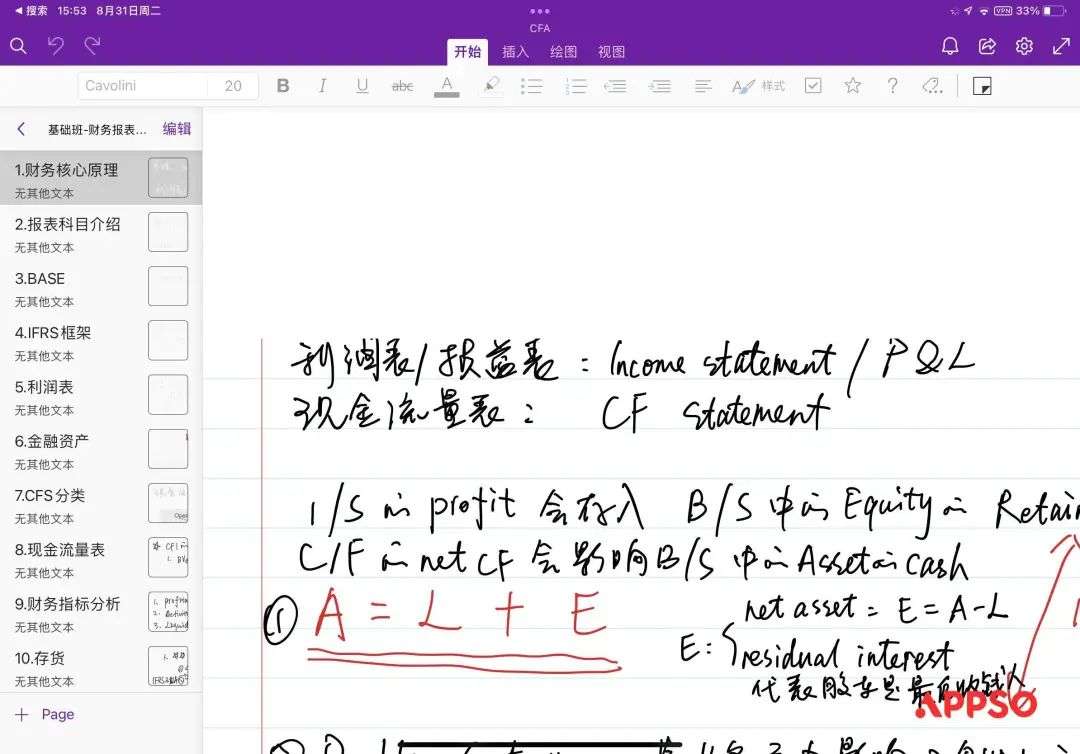 搜索 15:53 8月31日周二
VPN 33%
CFA
开始 插入 绘图 视图
Cavolini 20 B I U abc A 样式
基础班-财务报表... 编辑
1.财务核心原理
无其他文本
2.报表科目介绍
无其他文本
3.BASE
无其他文本
4.IFRS框架
无其他文本
5.利润表
无其他文本
6.金融资产
无其他文本
7.CFS分类
无其他文本
8.现金流量表
无其他文本
9.财务指标分析
无其他文本
10.存货
无其他文本
+ Page
利润表/损益表：Income statement / P&L
现金流量表： CF statement
I/S的profit 会存入 B/S中的Equity的 Retain
C/F的net CF 会影响B/S 中的Asset的cash
① A = L + E
net asset = E = A-L
E: residual interest
代表股东是最后收钱人
APPSO